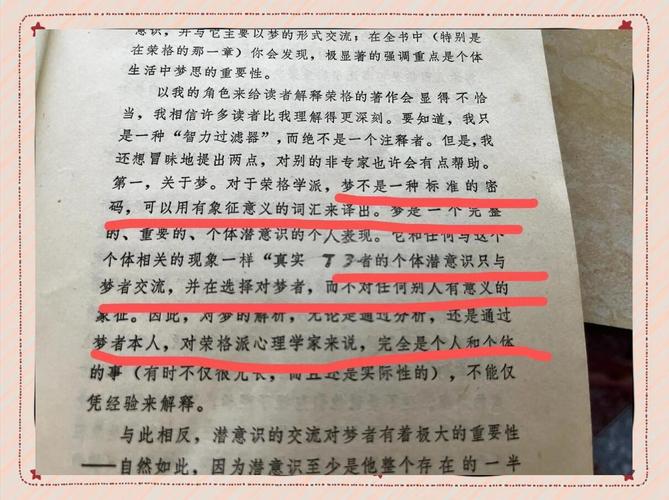 意识，并与它主要以梦的形式交流；在全书中（特别是
在荣格的那一章）你会发现，极显著的强调重点是个体
生活中梦思的重要性。
以我的角色来给读者解释荣格的著作会显得不恰
当，我相信许多读者比我理解得更深刻。要知道，我只
是一种“智力过滤器”，而绝不是一个注释者。但是，我
还想冒昧地提出两点，对别的非专家也许会有点帮助。
第一，关于梦。对于荣格学派，梦不是一种标准的密
码，可以用有象征意义的词汇来译出。梦是一个完整
的、重要的、个体潜意识的个人表现。它和任何与这个
个体相关的现象一样“真实 者的个体潜意识只与
梦者交流，并在选择对梦者，而不对任何别人有意义的
象征。因此，对梦的解析，无论是通过分析，还是通过
梦者本人，对荣格派心理学家来说，完全是个人和个体
的事（有时不仅很冗长，而且还是实际性的），不能仅
凭经验来解释。
与此相反，潜意识的交流对梦者有着极大的重要性
——自然如此，因为潜意识至少是他整个存在的一半